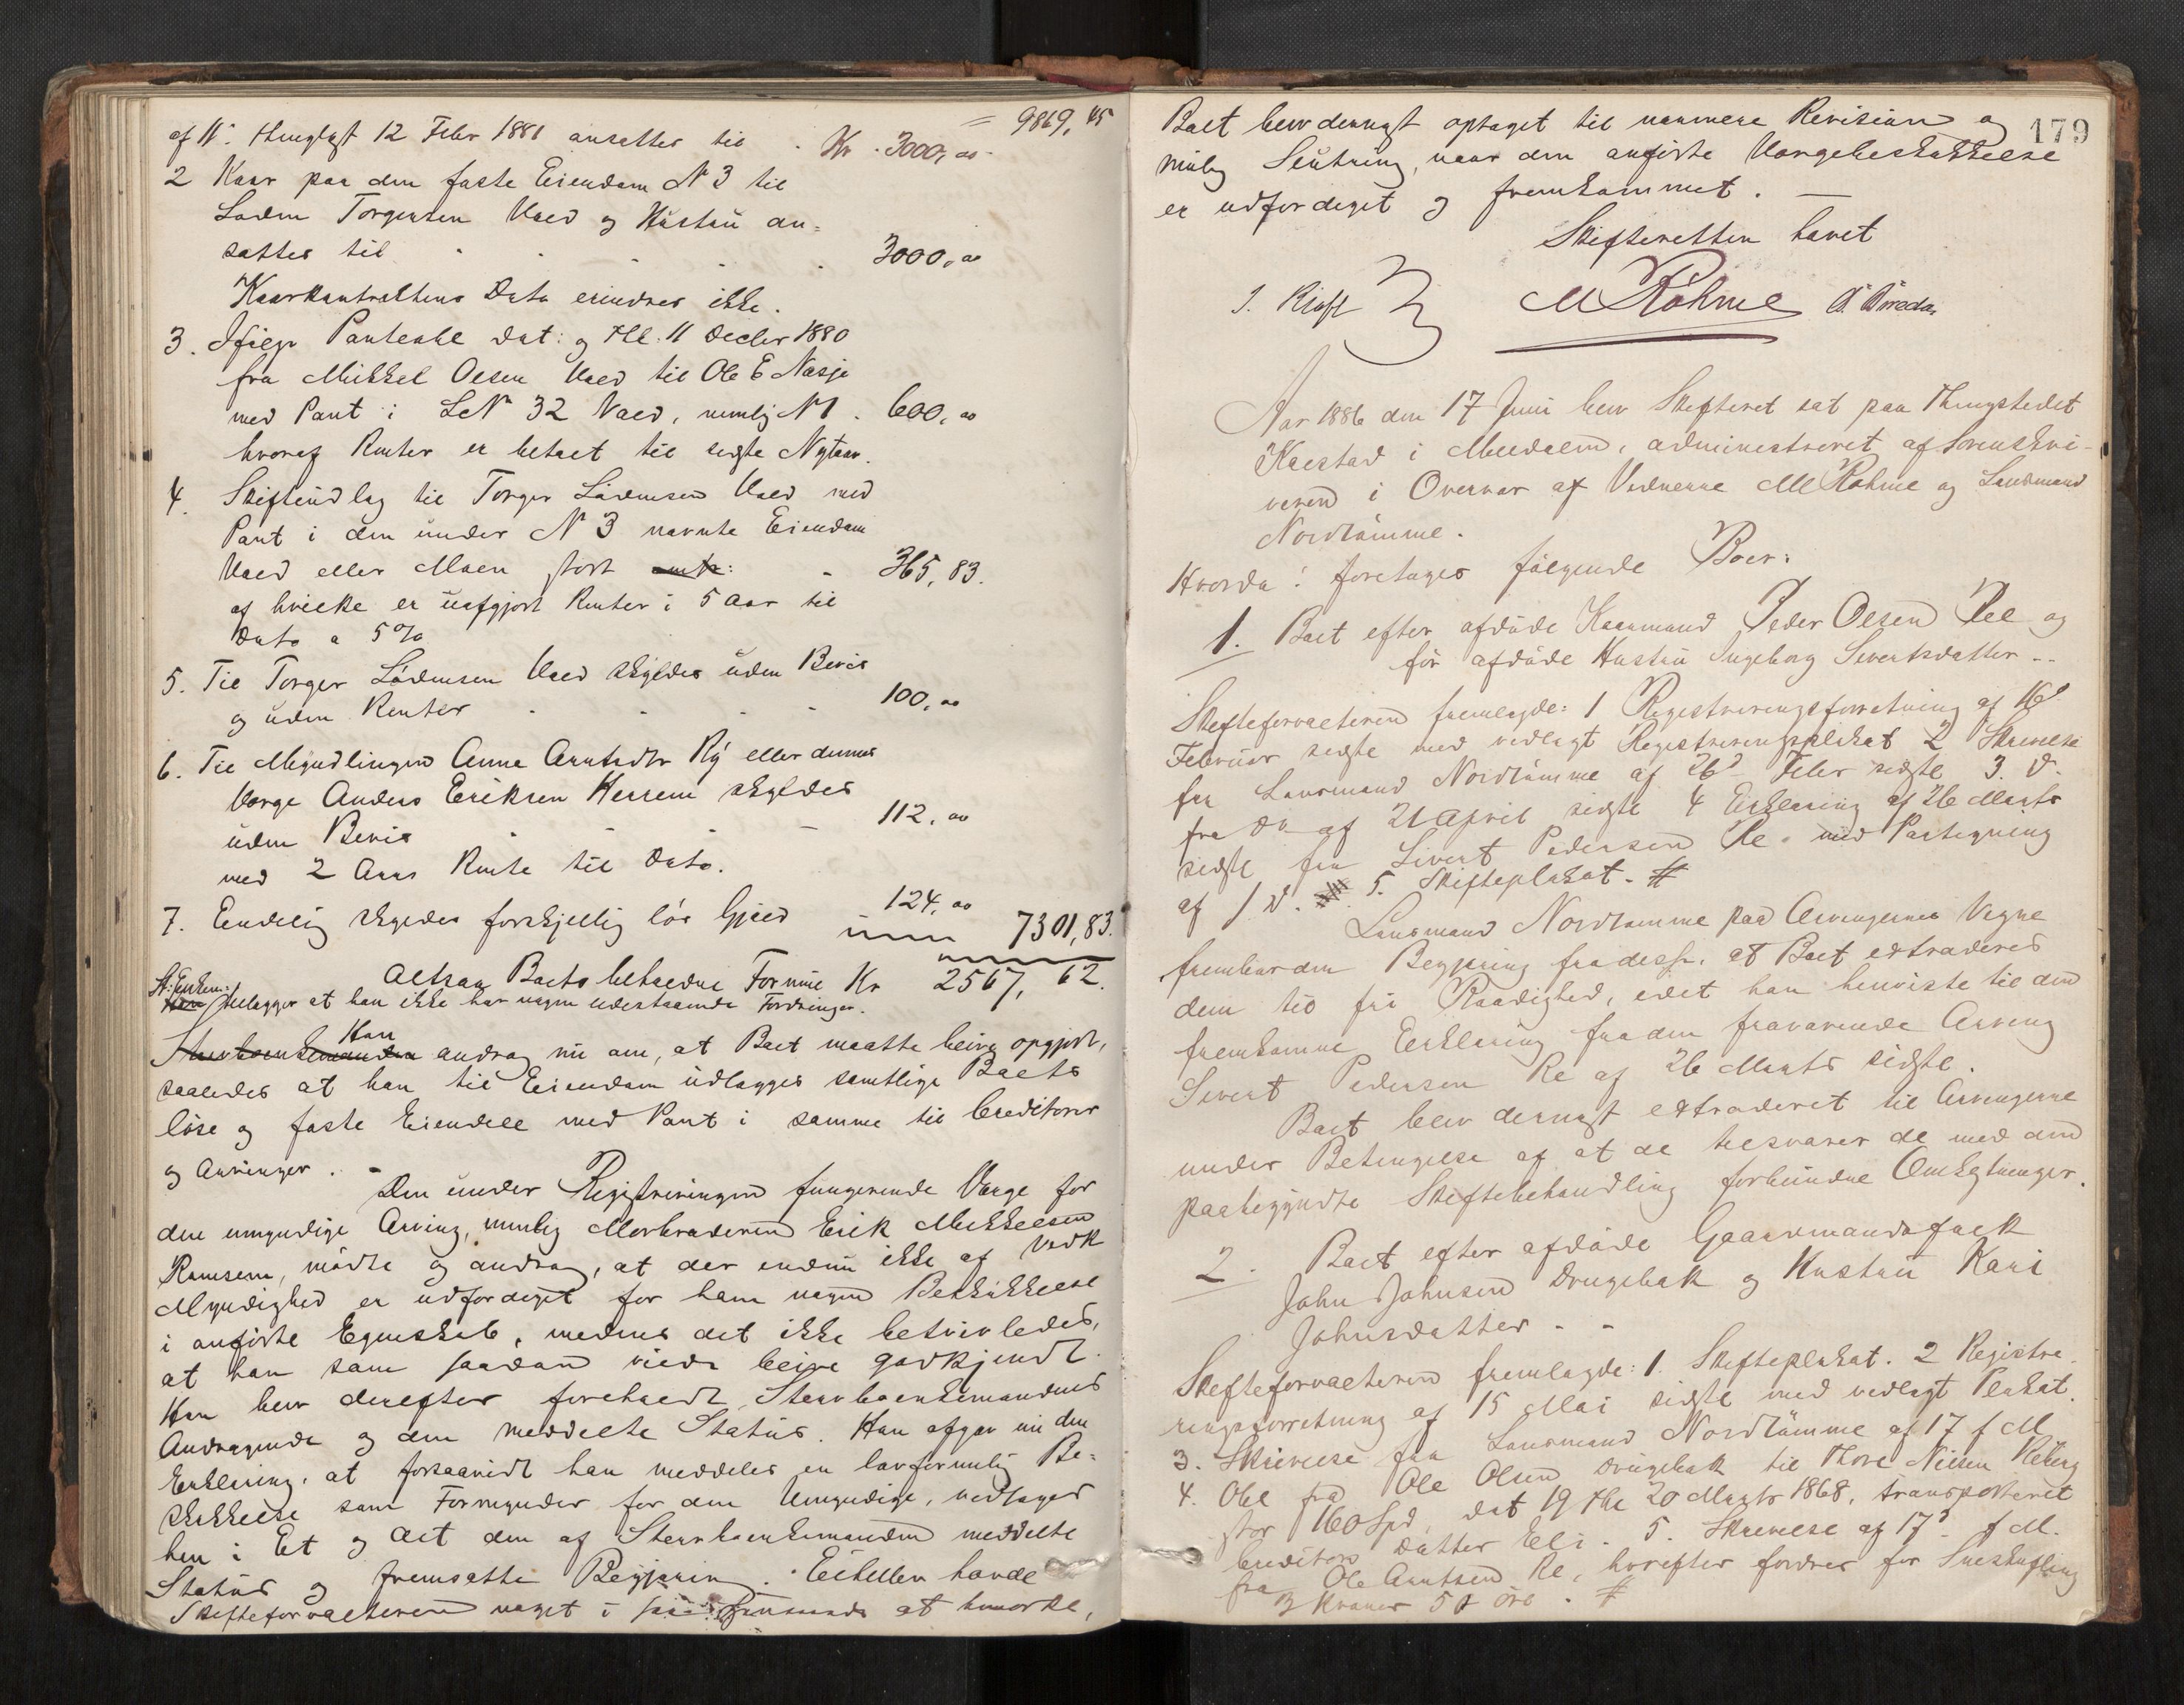 = 9869,45
af 11' Thinglyst 12 Febr 1881 ansattes til . Kr. 3000,00
2 Kaar paa den faste Eiendom No 3 til
Lodin Torgersen Uued og Hustru an=
sattes til . . . . . 3000,00
Kaarkontraktens Dato erindres ikke.
3. Ifølge Panteobl dat: og thl. 11 Decbr 1880
fra Mikkel Olsen Uued til Ole E Nasje
med Pant i LN 32 Uued, nemlig N 1 . 600,00
hvoraf Renter er betalt til sidste Nytaar.
4. Skifteudlæg til Torger Lodinsen Uued med
Pant i den under No 3 nævnte Eiendom
Uued eller Moen stort - 365,83.
af hvilke er uafgjort Renter i 5 Aar til
Dato a 5%
5. Til Torger Lodinsen Uued skyldes uden Bevis
og uden Renter . . . . 100,00
6. Til Myndlingen Anne Arntsdtr Ry eller dennes
Værge Anders Eriksen Herrem skyldes
uden Bevis . . - 112,00
med 2 Aars Rente til Dato.
7. Endelig skyldes forskjellig løs Gjæld 124,00
7301,83.
Altsaa Boets beholdne Formue Kr 2567,62.
tillægger at han ikke har nogen udestaaende Fordringer.
Han
Stervboenkemanden androg nu om, at Boet maatte blive opgjort,
saaledes at han til Eiendom udlægges samtlige Boets
løse og faste Eiendele med Pant i samme til Creditorer
og Arvinger. -
Den under Registreringen fungerende Værge for
den umyndige Arving, nemlig Morbroderen Erik Mikkelsen
Ramsem, mødte og androg, at der endnu ikke af Vedk
Myndighed er udfærdiget for ham nogen Beskikkelse
i anførte Egenskab, medens det ikke betvivledes,
at han som saadan vilde blive godkjendt.
Han blev derefter foreholdt Stervboenkemandens
Andragende og den meddelte Status. Han afgav nu den
Erklæring, at forsaavidt han meddeles en lovformelig Be=
skikkelse som Formynder for den Umyndige, vedtages
han i Et og Alt den af Stervboenkemanden meddelte
Status og fremsatte Begjæring. Eiheller havde
Skifteforvalteren noget i saa Henseende at bemærke,
179
Boet blev dernæst optaget til nærmere Revision og
mulig Slutning, naar den anførte Værgebeskikkelse
er udfærdiget og fremkommet. —
Skifteretten hævet
J. Kjøst M Rohme
Aar 1886 den 17 Juni blev Skifteret sat paa Thingstedet
Kaestad i Meldalen, administreret af Sorenskri-
veren i Overvær af Vidnerne M Rohme og Lensmand
Nordtømme.
Hvorda: foretages følgende Boer:
1. Boet efter afdøde Kaarmand Peder Olsen Ree og
før afdøde Hustru Ingeborg Sivertsdatter --
Skifteforvalteren fremlagde: 1 Registreringsforretning af 16d
Februar sidste med vedlagt Registreringsplakat 2 Skrivelse
fra Lensmand Nordtømme af 26d Febr sidste 3. Do.
fra Do af 21 April sidste 4 Erklæring af 26 Marts
sidste fra Sivert Pedersen Re med Paategning
af s. D. 5. Skifteplakat. #
Lensmand Nordtømme paa Arvingernes Vegne
frembar den Begjæring fra disse, at Boet extraderes
dem til fri Raadighed, idet han henviste til den
fremkomne Erklæring fra den fraværende Arving
Sivert Pedersen Re af 26 Marts sidste.
Boet blev dernæst extraderet til Arvingerne
under Betingelse af at de tilsvarer de med den
paabegyndte Skiftebehandling forbundne Omkostninger.
2. Boet efter afdøde Gaardmandsfolk
John Johnsen Drugebak og Hustru Kari
Johnsdatter - -
Skifteforvalteren fremlagde: 1. Skifteplakat. 2 Registre-
ringsforretning af 15 Mai sidste med vedlagt Plakat.
3. Skrivelse fra Lensmand Nordtømme af 17 f M
4. Obl fra Ole Olsen Drugebak til Thore Nilsen Reberg
stor 160 Spd, dat 19 thl 20 Marts 1868, transporteret
Creditors Datter Eli. 5. Skrivelse af 17d f M.
fra Ole Arntsen Re, hvorefter fordres for
3 Kroner 50 øre. #